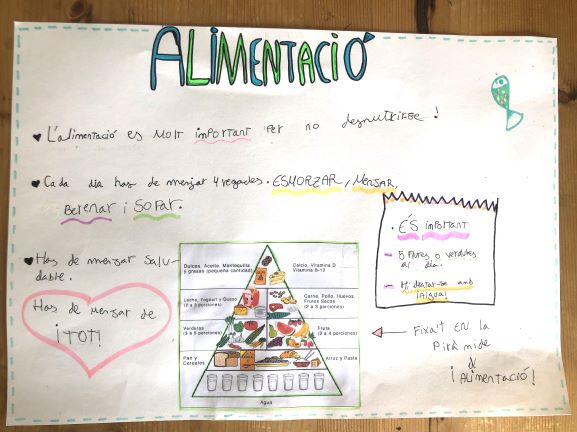 ALIMENTACIÓ
♥ L'alimentació es molt important per no desnutrirse!
♥ Cada dia has de menjar 4 vegades. ESMORZAR, MENJAR,
BERENAR i SOPAR.
♥ Has de menjar salu-
dable.
Has de menjar de
¡TOT!
• ÉS important
- 5 fruites o verdures
al dia.
- Hidratar-se amb
¡Aigua!
Dulces, Aceite, Mantequilla
y grasas (pequeña cantidad)
Calcio, Vitamina D
Vitamina B-12
Leche, Yogourt y Queso
(2 a 3 porciones)
Carne, Pollo, Huevos,
Frutos Secos
(2 a 3 porciones)
Verduras
(3 a 5 porciones)
Fruta
(2 a 4 porciones)
Pan y
Cereales
Arroz y Pasta
Agua
FIXA'T EN LA
PIRÀMIDE
D'
¡ALIMENTACIÓ!